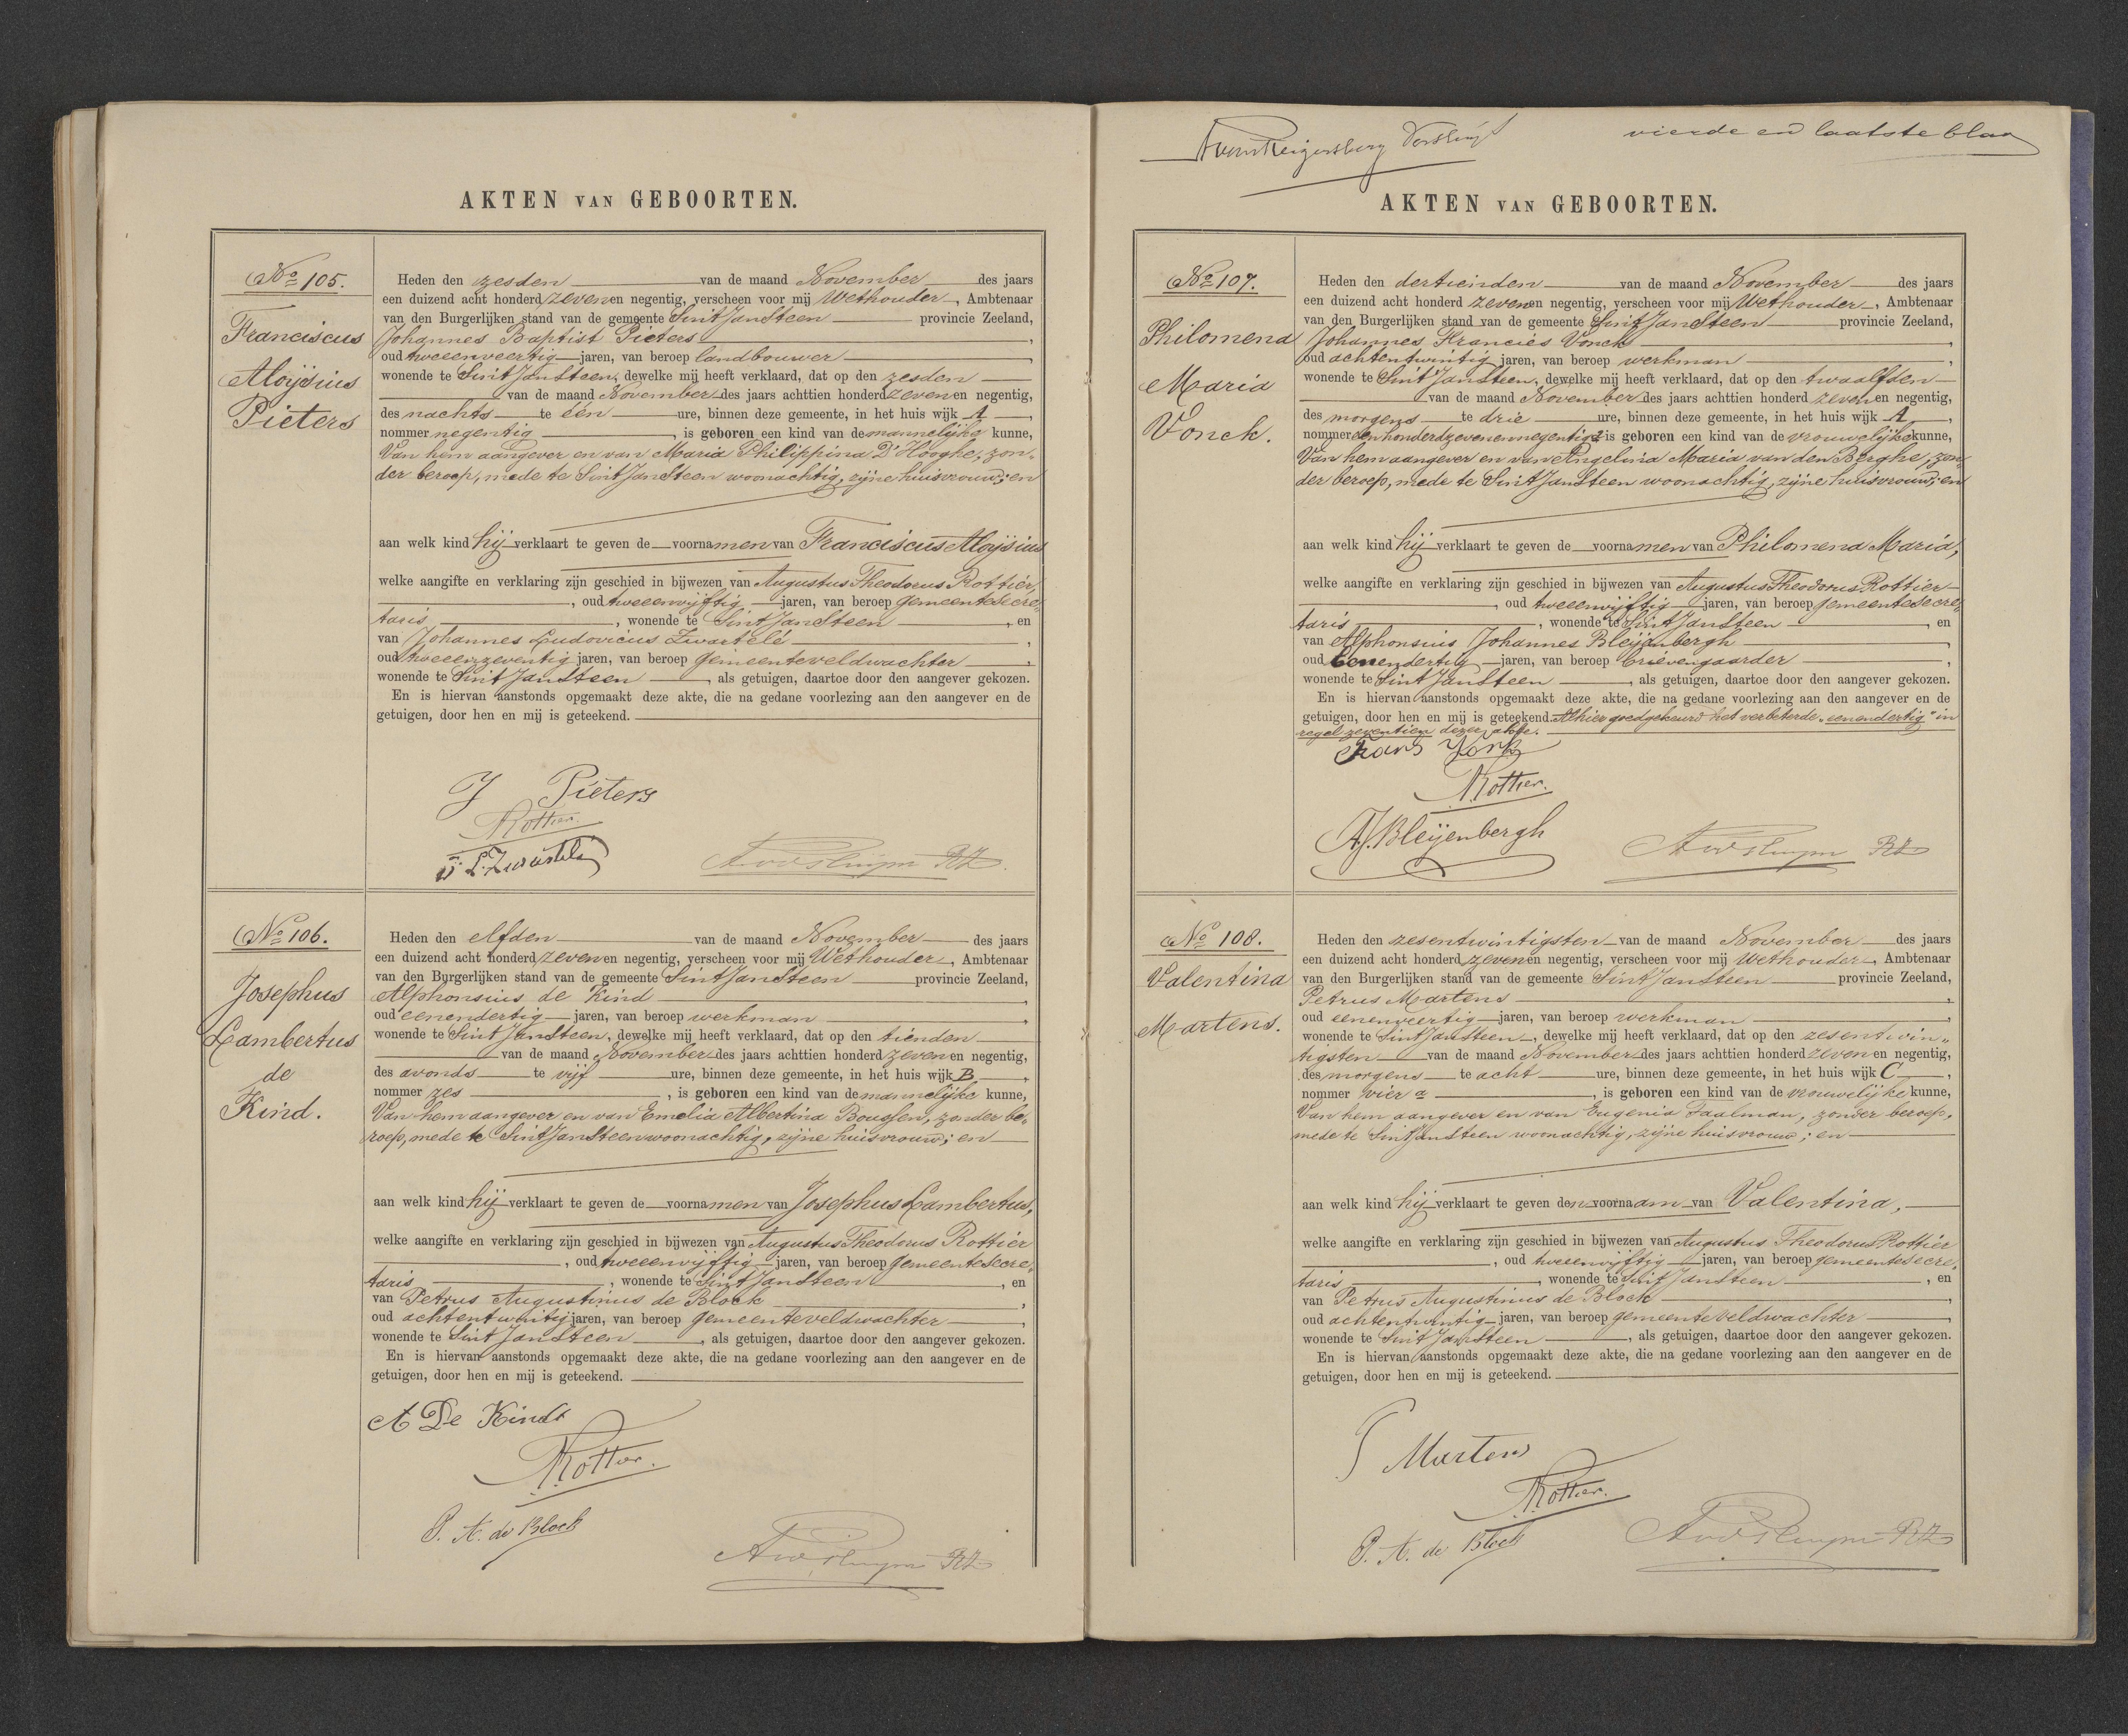 AKTEN VAN GEBOORTEN.
No 105.
Franciscus
Aloijsius
Pieters
Heden den zesden van de maand November des jaars
een duizend acht honderd zeven en negentig, verscheen voor mij Wethouder, Ambtenaar
van den Burgerlijken stand van de gemeente Sint JanSteen provincie Zeeland,
Johannes Baptist Pieters,
oud tweeenveertig jaren, van beroep landbouwer,
wonende te Sint JanSteen, dewelke mij heeft verklaard, dat op den zesden
van de maand November des jaars achttien honderd zeven en negentig,
des nachts te één ure, binnen deze gemeente, in het huis wijk A,
nommer negentig, is geboren een kind van de mannelijke kunne,
Van hem aangever en van Maria Philippina D'Hooghe, zon-
der beroep, mede te Sint JanSteen woonachtig, zijne huisvrouw; en
aan welk kind hij verklaart te geven de voornamen van Franciscus Aloijsius
welke aangifte en verklaring zijn geschied in bijwezen van Augustus Theodorus Rottier,
, oud tweeenvijftig jaren, van beroep gemeentesecre-
taris, wonende te Sint JanSteen, en
van Johannes Ludovicus Zwartelé,
oud tweeenzeventig jaren, van beroep gemeenteveldwachter,
wonende te Sint JanSteen, als getuigen, daartoe door den aangever gekozen.
En is hiervan aanstonds opgemaakt deze akte, die na gedane voorlezing aan den aangever en de
getuigen, door hen en mij is geteekend.
J Pieters
Rottier.
J. L. Zwartelé
No 106.
Josephus
Lambertus
de
Kind.
Heden den elfden van de maand November des jaars
een duizend acht honderd zeven en negentig, verscheen voor mij Wethouder, Ambtenaar
van den Burgerlijken stand van de gemeente Sint JanSteen provincie Zeeland,
Alphonsius de Kind,
oud eenendertig jaren, van beroep werkman,
wonende te Sint JanSteen, dewelke mij heeft verklaard, dat op den tienden
van de maand November des jaars achttien honderd zeven en negentig,
des avonds te vijf ure, binnen deze gemeente, in het huis wijk B,
nommer zes, is geboren een kind van de mannelijke kunne,
Van hem aangever en van Emelia Albertina, zonder be-
roep, mede te Sint JanSteen woonachtig, zijne huisvrouw; en
aan welk kind hij verklaart te geven de voornamen van Josephus Lambertus,
welke aangifte en verklaring zijn geschied in bijwezen van Augustus Theodorus Rottier
, oud tweeenvijftig jaren, van beroep gemeentesecre-
taris, wonende te Sint JanSteen, en
van Petrus Augustinus de Block,
oud achtentwintig jaren, van beroep gemeenteveldwachter,
wonende te Sint JanSteen, als getuigen, daartoe door den aangever gekozen.
En is hiervan aanstonds opgemaakt deze akte, die na gedane voorlezing aan den aangever en de
getuigen, door hen en mij is geteekend.
A De Kindt
Rottier.
P. A. de Block
vierde en laatste blad
AKTEN VAN GEBOORTEN.
No 107.
Philomena
Maria
Vonck.
Heden den dertienden van de maand November des jaars
een duizend acht honderd zeven en negentig, verscheen voor mij Wethouder, Ambtenaar
van den Burgerlijken stand van de gemeente Sint JanSteen provincie Zeeland,
Johannes Francies Vonck,
oud achtentwintig jaren, van beroep werkman,
wonende te Sint JanSteen, dewelke mij heeft verklaard, dat op den twaalfden
van de maand November des jaars achttien honderd zeven en negentig,
des morgens te drie ure, binnen deze gemeente, in het huis wijk A,
nommer een honderd zevenennegentig a is geboren een kind van de vrouwelijke kunne,
Van hem aangever en van Angelina Maria van den Berghe, zon-
der beroep, mede te Sint JanSteen woonachtig, zijne huisvrouw; en
aan welk kind hij verklaart te geven de voornamen van Philomena Maria,
welke aangifte en verklaring zijn geschied in bijwezen van Augustus Theodorus Rottier
, oud tweeenvijftig jaren, van beroep gemeentesecre-
taris, wonende te Sint JanSteen, en
van Alphonsius Johannes Bleijenbergh,
oud eenendertig jaren, van beroep brievengaarder,
wonende te Sint JanSteen, als getuigen, daartoe door den aangever gekozen.
En is hiervan aanstonds opgemaakt deze akte, die na gedane voorlezing aan den aangever en de
getuigen, door hen en mij is geteekend. Alhier goedgekeurd het verbeterde "eenendertig" in
regel zeventien dezer akte.
Frans Vonk
Rottier.
A.J. Bleijenbergh
No 108.
Valentina
Martens.
Heden den zesentwintigsten van de maand November des jaars
een duizend acht honderd zeven en negentig, verscheen voor mij Wethouder, Ambtenaar
van den Burgerlijken stand van de gemeente Sint JanSteen provincie Zeeland,
Petrus Martens,
oud eenenveertig jaren, van beroep werkman,
wonende te Sint JanSteen, dewelke mij heeft verklaard, dat op den zesentwin-
tigsten van de maand November des jaars achttien honderd zeven en negentig,
des morgens te acht ure, binnen deze gemeente, in het huis wijk C,
nommer vier a, is geboren een kind van de vrouwelijke kunne,
Van hem aangever en van Eugenia Taalman, zonder beroep,
mede te Sint JanSteen woonachtig, zijne huisvrouw; en
aan welk kind hij verklaart te geven den voornaam van Valentina,
welke aangifte en verklaring zijn geschied in bijwezen van Augustus Theodorus Rottier
, oud tweeenvijftig jaren, van beroep gemeentesecre-
taris, wonende te Sint JanSteen, en
van Petrus Augustinus de Block,
oud achtentwintig jaren, van beroep gemeenteveldwachter,
wonende te Sint JanSteen, als getuigen, daartoe door den aangever gekozen.
En is hiervan aanstonds opgemaakt deze akte, die na gedane voorlezing aan den aangever en de
getuigen, door hen en mij is geteekend.
P Martens
Rottier.
P. A. de Block